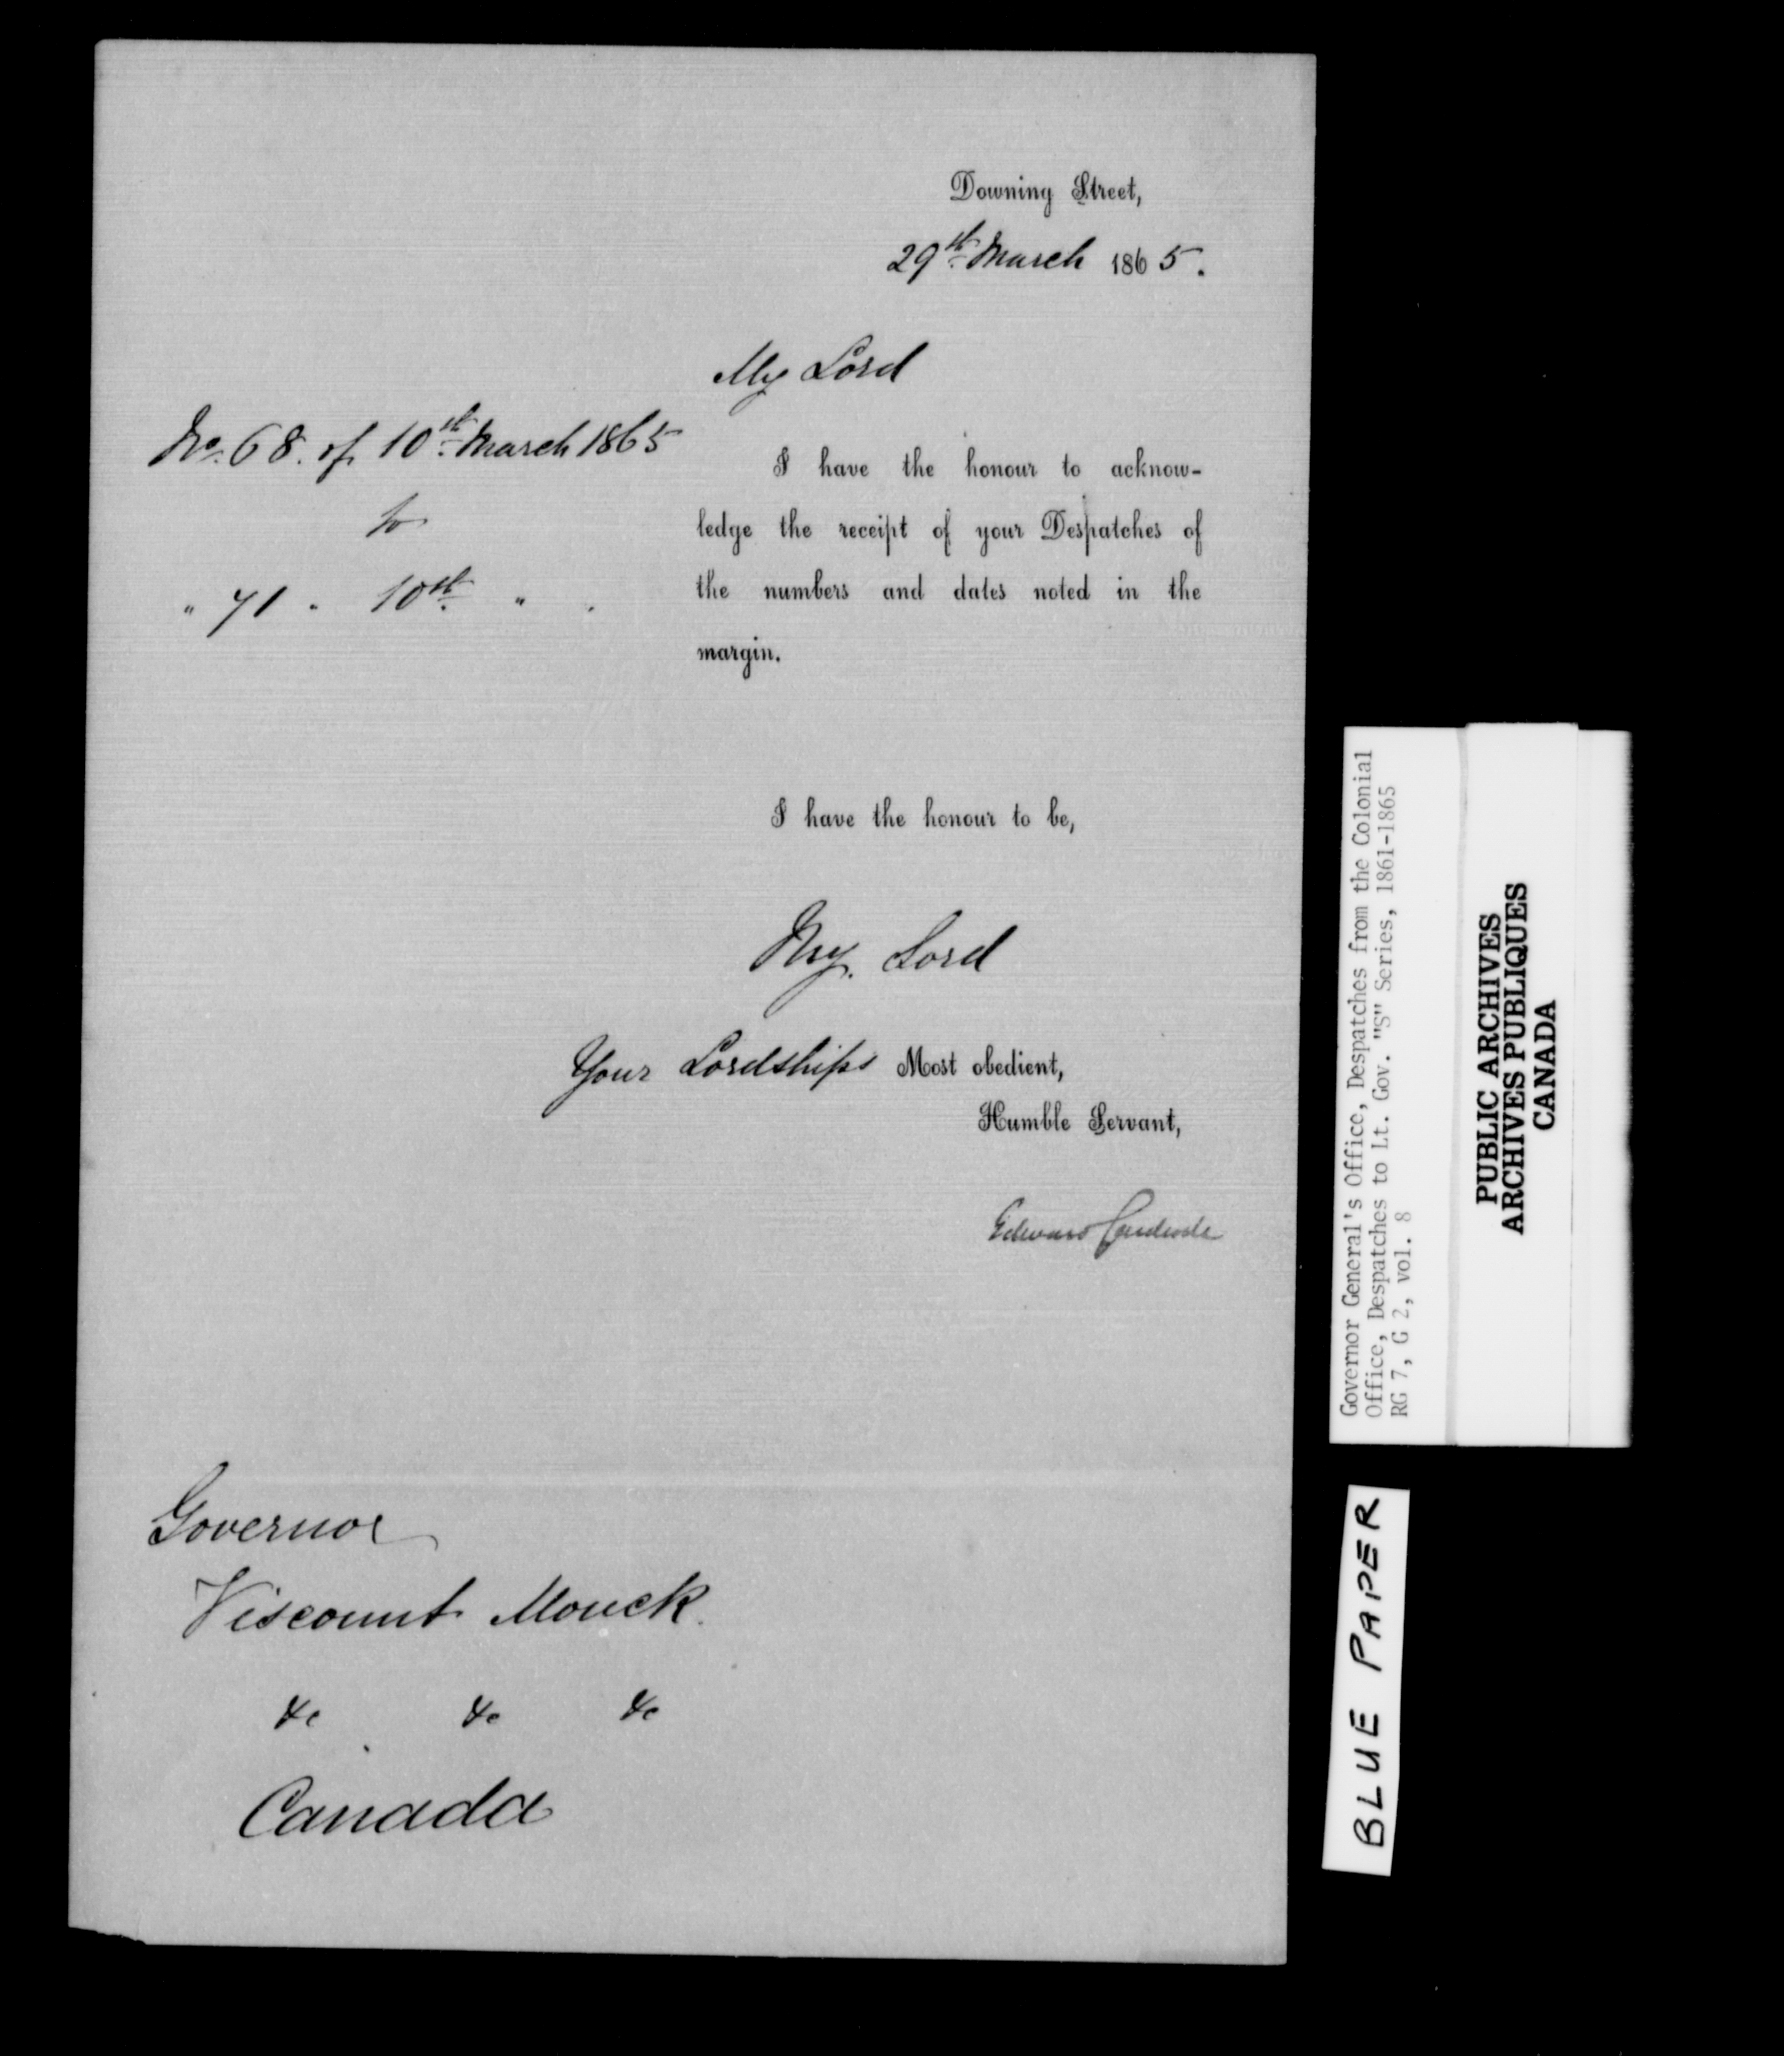 Downing Street,
29th March 1865.
My Lord
No. 68. of 10th March 1865
to
" 71 " 10th " "
I have the honour to acknow-
ledge the receipt of your Despatches of
the numbers and dates noted in the
margin.
I have the honour to be,
My Lord
Your Lordships Most obedient,
Humble Servant,
Edward Cardwell
Governor
Viscount Monck.
&c &c &c
Canada
Governor General's Office, Despatches from the Colonial
Office, Despatches to Lt. Gov. "S" Series, 1861-1865
RG 7, G 2, vol. 8
PUBLIC ARCHIVES
ARCHIVES PUBLIQUES
CANADA
BLUE PAPER